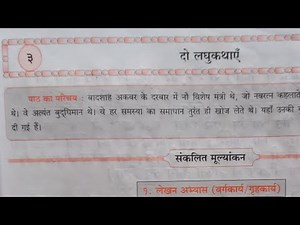 ३
दो लघुकथाएँ
पाठ का परिचय : बादशाह अकबर के दरबार में नौ विशेष मंत्री थे, जो नवरत्न कहलाते
थे। वे अत्यंत बुद्धिमान थे। वे हर समस्या का समाधान तुरंत ही खोज लेते थे। यहाँ उनकी
दी गई हैं।
संकलित मूल्यांकन
१. लेखन अभ्यास (वर्गकार्य/गृहकार्य)